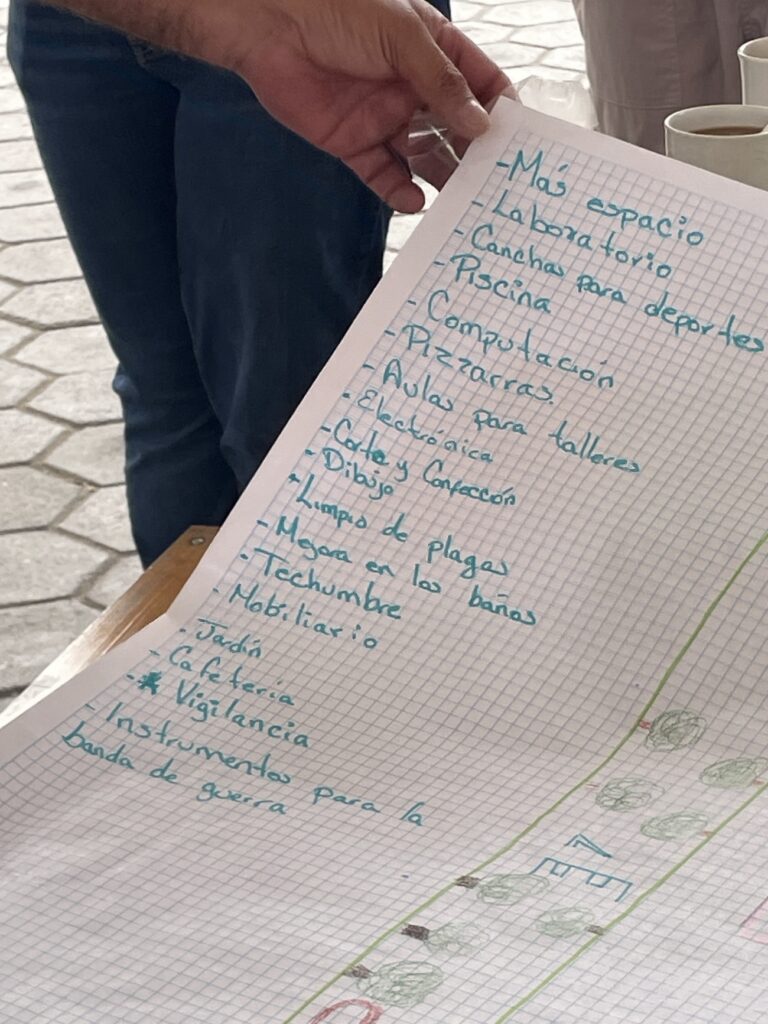 -Más espacio
-Laboratorio
-Canchas para deportes
-Piscina
-Computación
-Pizzarras.
-Aulas para talleres
-Electrónica
-Corte y Confección
-Dibujo
-Limpio de plagas
-Mejora en los baños
-Techumbre
-Mobiliario
-Jardín
-Cafetería
-Vigilancia
-Instrumentos para la
banda de guerra